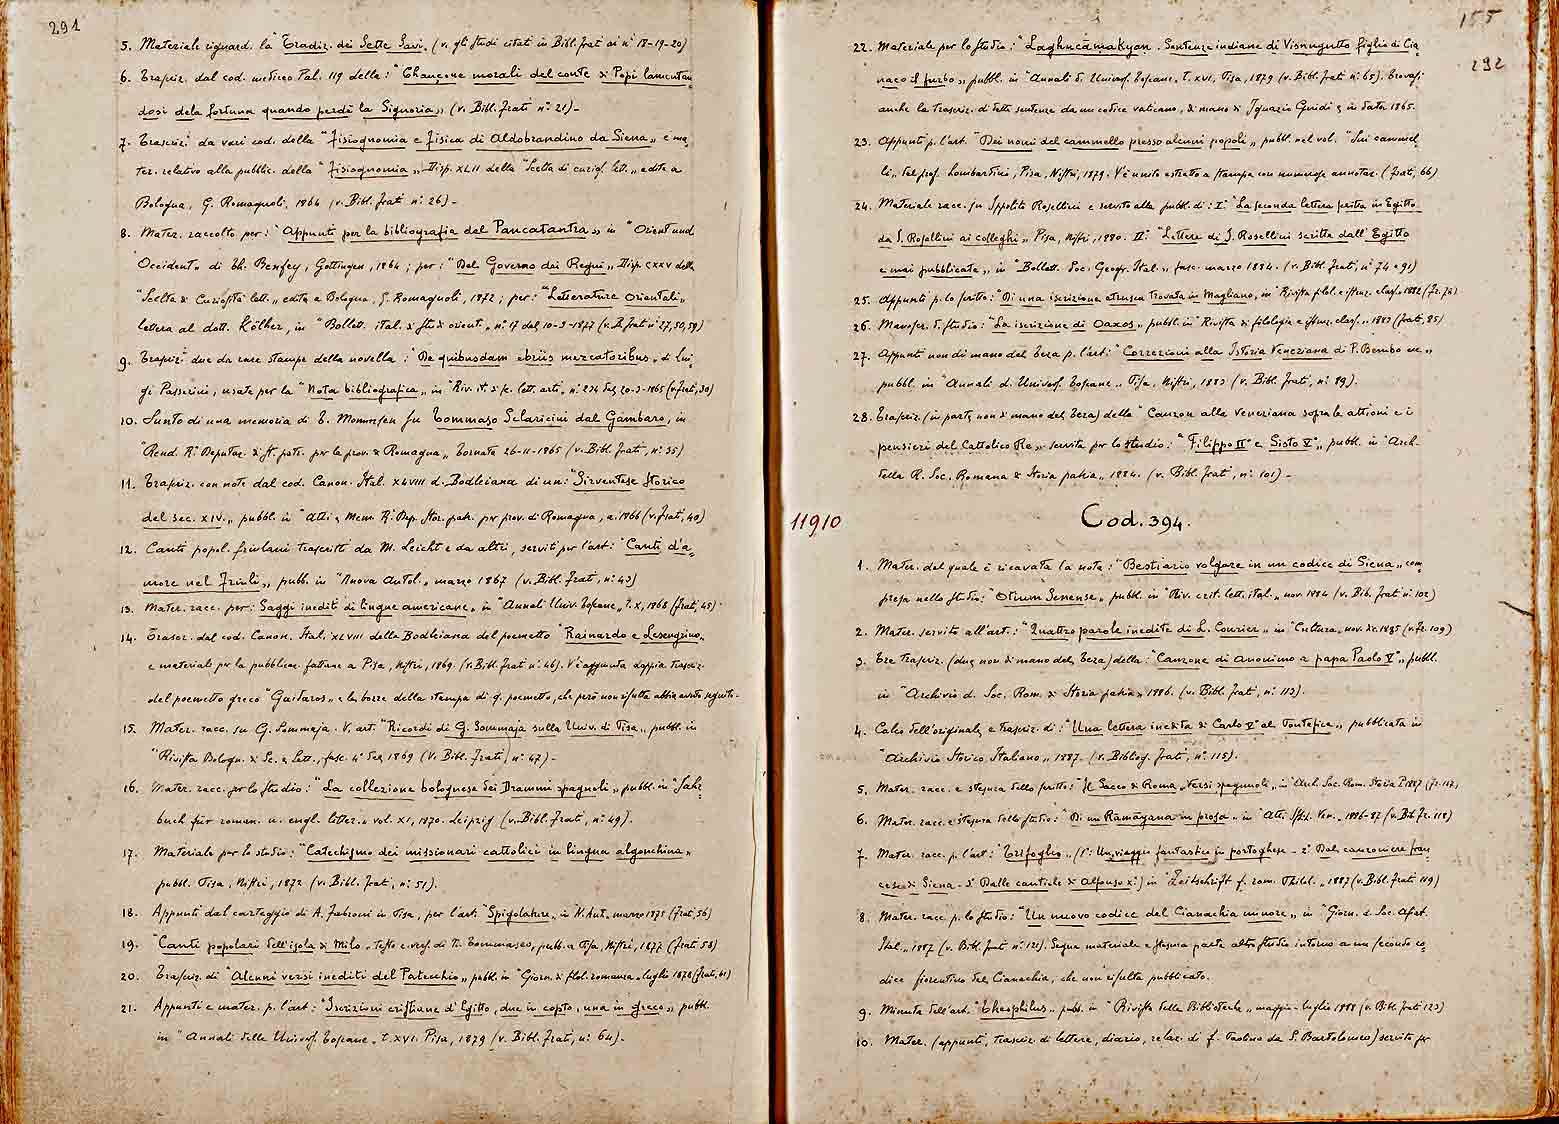 291
5. Materiale riguard. la "Tradiz. dei Sette Savi. (v. gli studi citati in Bibl. frati ai ni 18-19-20)
6. Trascriz. dal cod. mediceo Pal. 119 della: "Chançone morali del conte di Popi lamentan
dosi dela fortuna quando perdé la Signoria,, (v. Bibl. Frati n° 21)-
7. Trascriz. da vari cod. della "Fisiognomia e Fisica di Aldobrandino da Siena,, e ma-
ter. relativo alla pubblic. della "Fisiognomia,, Disp. XLII della "Scelta di curios. lett.,, edita a
Bologna, G. Romagnoli, 1864 (v. Bibl. frati n° 26)-
8. Mater. raccolto per: "Appunti per la bibliografia del Pancatantra,, in "Orient und
Occident,, di Th. Benfey, Gottingen, 1864; per: "Del Governo dei Regni,, Disp. CXXV della
"Scelta di Curiosità lett.,, edita a Bologna, G. Romagnoli, 1872; per: "Letterature orientali,,
lettera al dott. Kölher, in "Bollett. ital. di studi orient.,, n° 17 del 10-3-1877 (v. B. frati ni 27,50,59)
9. Trascriz. due da rare stampe della novella: "De quibusdam ebriis mercatoribus,, di Lui-
gi Passerini, usate per la "Nota bibliografica,, in "Riv. it. di sc. lett. arti,, n° 234 del 20-3-1865 (v. frati, 30)
10. Sunto di una memoria di T. Mommsen su Tommaso Sclaricini dal Gambaro, in
"Rend. R. Deputaz. di st. patr. per le prov. di Romagna,, Tornata 26-11-1865 (v. Bibl. frati, n° 35)
11. Trascriz. con note dal cod. Canon. Ital. XLVIII d. Bodleiana di un: "Sirventese storico
del sec. XIV.,, pubbl. in "Atti e Mem. R. Dep. Stor. patr. per prov. di Romagna, a. 1866 (v. Frati, 40)
12. Canti popol. friulani trascritti da M. Leicht e da altri, serviti per l'art: "Canti d'a-
more nel Friuli,, pubb. in "Nuova Antol.,, marzo 1867 (v. Bibl. Frati, n° 43)
13. Mater. racc. per: Saggi inediti di lingue americane,, in "Annali Univ. Toscane,, T. X, 1868 (frati, 45)
14. Trascr. dal cod. Canon. Ital. XLVIII della Bodleiana del poemetto "Rainardo e Lesengrino,,
e materiali per la pubblicaz. fattane a Pisa, Nistri, 1869. (v. Bibl. Frati n° 46). V'è aggiunta doppia trascriz.
del poemetto greco "Gaidaros,, e le bozze della stampa di q. poemetto, che però non risulta abbia avuto seguito-
15. Mater. racc. su G. Sommaja. V. art. "Ricordi di G. Sommaja sulla Univ. di Pisa,, pubbl. in
"Rivista Bologn. di Sc. e Lett., fasc. 4° del 1869 (V. Bibl. Frati, n° 47)-
16. Mater. racc. per lo studio: "La collezione bolognese dei Drammi spagnoli,, pubbl. in "Jahr-
buch für roman. u. engl. letter.,, vol. XI, 1870. Leipzig (v. Bibl. Frati, n° 49).
17. Materiale per lo studio: "Catechismo dei missionari cattolici in lingua algonchina,,
pubbl. Pisa, Nistri, 1872 (v. Bibl. frati, n° 51).
18. Appunti dal carteggio di A. Fabroni in Pisa, per l'art. "Spigolature,, in N. Ant. marzo 1875 (frati, 56)
19. "Canti popolari dell'isola di Milo. Testo e vers. di N. Tommaseo, pubb. a Pisa, Nistri, 1877 (frati 58)
20. Trascriz. di "Alcuni versi inediti del Patecchio,, pubbl. in "Giorn. di filol. romanza, luglio 1878 (frati, 61)
21. Appunti e mater. p. l'art: "Iscrizioni cristiane d'Egitto, due in copto, una in greco,, pubbl.
in "Annali delle Univers. Toscane, t. XVI. Pisa, 1879 (v. Bibl. Frati, n° 64).
155
292
22. Materiale per lo studio: "Laghucānakyam. Sentenze indiane di Visnugutto figlio di Cia-
naco il furbo,, pubbl. in "Annali d. Univers. Toscane, T. XVI, Pisa, 1879 (v. Bibl. frati n° 65). Trovasi
anche la trascriz. di dette sentenze da un codice vaticano, di mano di Ignazio Guidi e in data 1865.
23. Appunti p. l'art. "Dei nomi del cammello presso alcuni popoli,, pubbl. nel vol. "Sui cammel
li,, del prof. Lombardini, Pisa, Nistri, 1879. V'è unito estratto a stampa con numerose annotaz. (frati, 66)
24. Materiale racc. su Ippolito Rosellini e servito alla pubbl. di: I° "La seconda lettera scritta in Egitto
da I. Rosellini ai colleghi,, Pisa, Nistri, 1880. II° "Lettere di I. Rosellini scritte dall'Egitto
e mai pubblicate,, in "Bollett. Soc. Geogr. Ital.,, fasc. marzo 1884. (v. Bibl. Frati, n° 74 e 91)
25. Appunti p. lo scritto: "Di una iscrizione etrusca trovata in Magliano, in "Rivista filol. e istruz. class., 1882 (fr. 76)
26. Manoscr. d. studio: "La iscrizione di Oaxos,, pubbl. in "Rivista di filologia e istruz. class.,, 1883 (frati, 85)
27. Appunti non di mano del Teza p. l'art: "Correzioni alla Istoria Veneziana di P. Bembo ecc,,
pubbl. in "Annali d. Univers. Toscane,, Pisa, Nistri, 1883 (v. Bibl. frati, n° 89).
28. Trascriz. (in parte non di mano del Teza) della "Canzon alla Veneziana sopra le attioni e i
pensieri del Cattolico Re,, servita per lo studio: "Filippo II° e Sisto V°,, pubbl. in "Arch.
della R. Soc. Romana di Storia patria, 1884. (v. Bibl. frati, n° 101)-
11910
Cod. 394.
1. Mater. dal quale è ricavata la nota: "Bestiario volgare in un codice di Siena,, com-
presa nello studio: "Otium Senense,, pubbl. in "Riv. crit. lett. ital.,, nov. 1884 (v. Bib. frati n° 102)
2. Mater. servito all'art.: "Quattro parole inedite di L. Courier,, in "Cultura,, nov. xx. 1885 (v. Fr. 109)
3. Tre trascriz. (due non di mano del Teza) della: "Canzone di anonimo a papa Paolo V°,, pubbl.
in "Archivio d. Soc. Rom. di Storia patria,, 1886. (v. Bibl. frati, n° 113).
4. Calco dell'originale e trascriz. di: "Una lettera inedita di Carlo V° al Pontefice,, pubblicata in
"Archivio Storico Italiano,, 1887. (v. Bibliog. frati, n° 115).
5. Mater. racc. e stesura dello scritto: "Il Sacco di Roma, Versi spagnuoli,, in "Arch. Soc. Rom. Storia P. 1887 (fr. 117)
6. Mater. racc. e stesura dello studio: "Di un Rāmāyana in prosa,, in "Atti Istit. Ven.,, 1886-87 (v. Bib. Fr. 118)
7. Mater. racc. p. l'art: "Trifoglio,, (1° Un viaggio fantastico in portoghese - 2° Dal canzoniere fran-
cese di Siena - 3° Dalle cantiche di Alfonso X°) in "Zeitschrift f. rom. Philol.,, 1887 (v. Bibl. Frati 119)
8. Mater. racc. p. lo studio: "Un nuovo codice del Cianachia minore,, in "Giorn. d. Soc. Asiat.
Ital.,, 1887 (v. Bibl. frati n° 121). Segue materiale e stesura parte altro studio intorno a un secondo co-
dice fiorentino del Cianachia, che non risulta pubblicato.
9. Minuta dell'art. "Theophilus,, pubb. in "Rivista delle Biblioteche,, maggio-luglio 1888 (v. Bibl. frati 123)
10. Mater. (appunti, trascriz. di lettere, diario, relaz. di f. Paolino da S. Bartolomeo) servito per